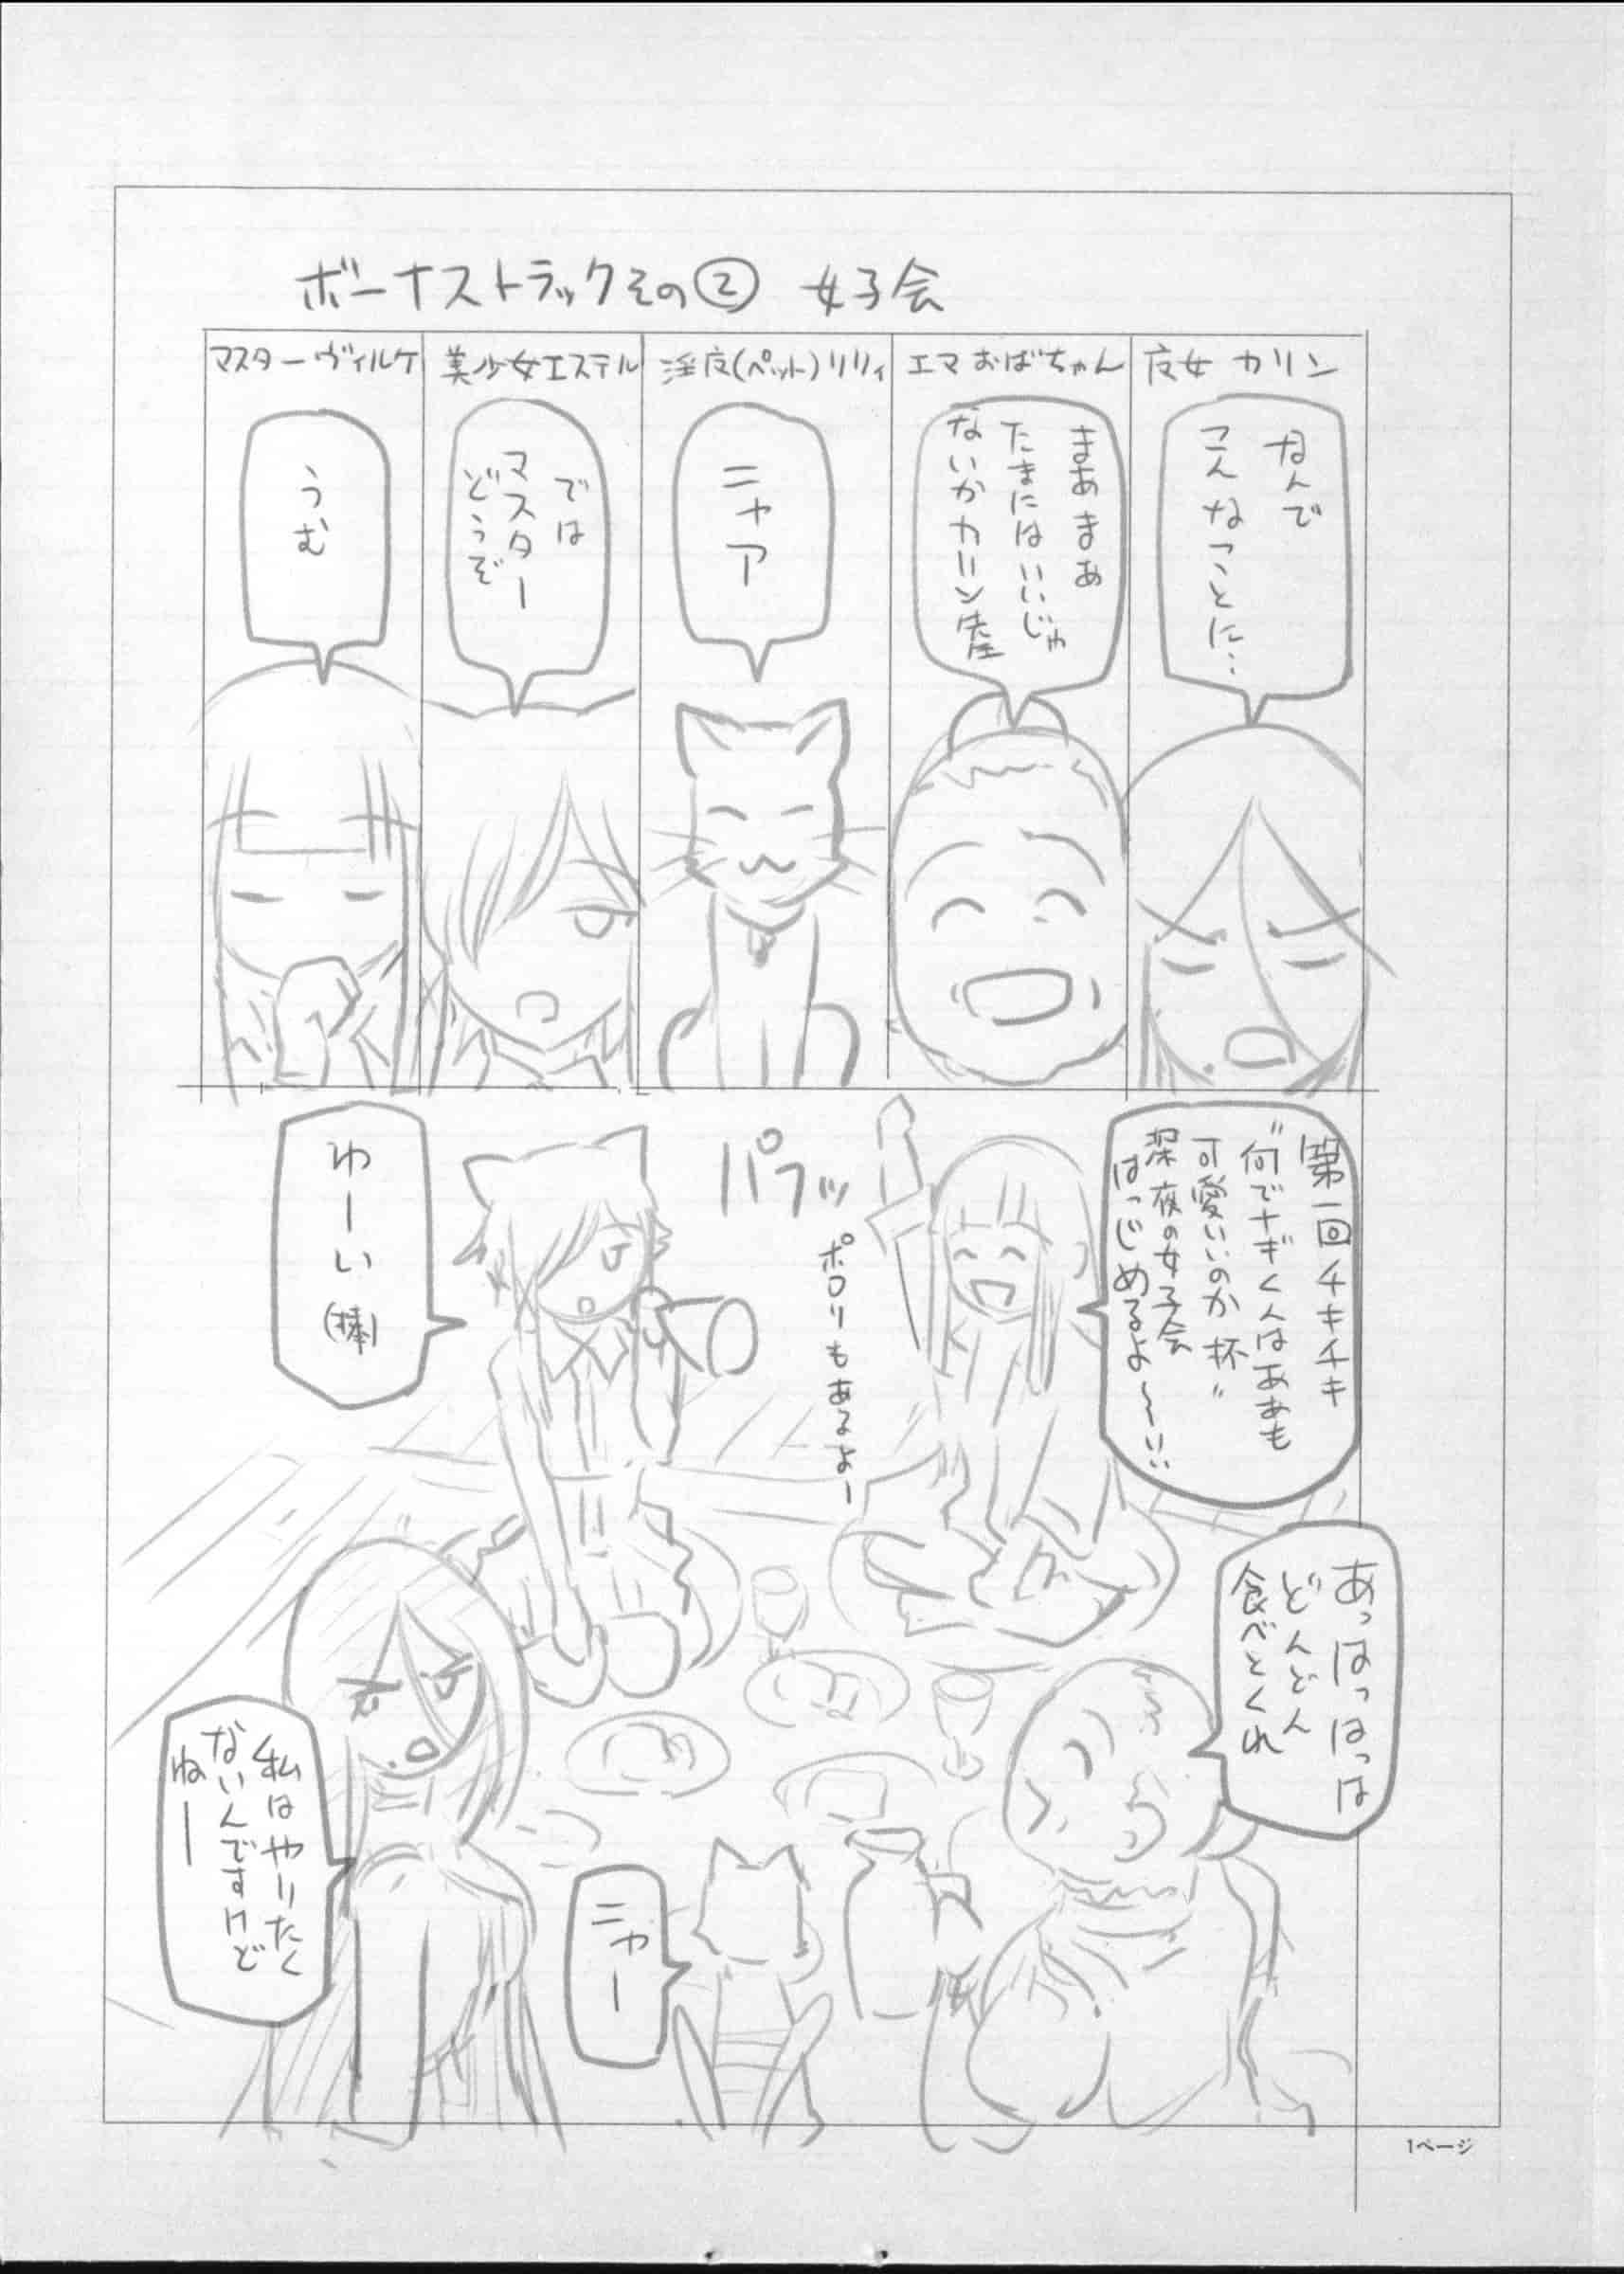 ボーナストラックその② 女子会
カリン
なんで
こんなことに…
エマおばちゃん
まあまあ
たまにはいいじゃ
ないかカリン先生
(ペット)リリィ
ニャア
美少女エステル
では
マスター
どうぞ
マスターヴィルケ
うむ
第一回チキチキ
"何でナギくんはああも
可愛いいのか杯"
深夜の女子会
はっじめるよ～〜いい
パフッ
ポロリもあるよー
わーい
(棒)
あっはっはっは
どんどん
食べとくれ
私はやりたく
ないんですけど
ねー
ニャー
1ページ